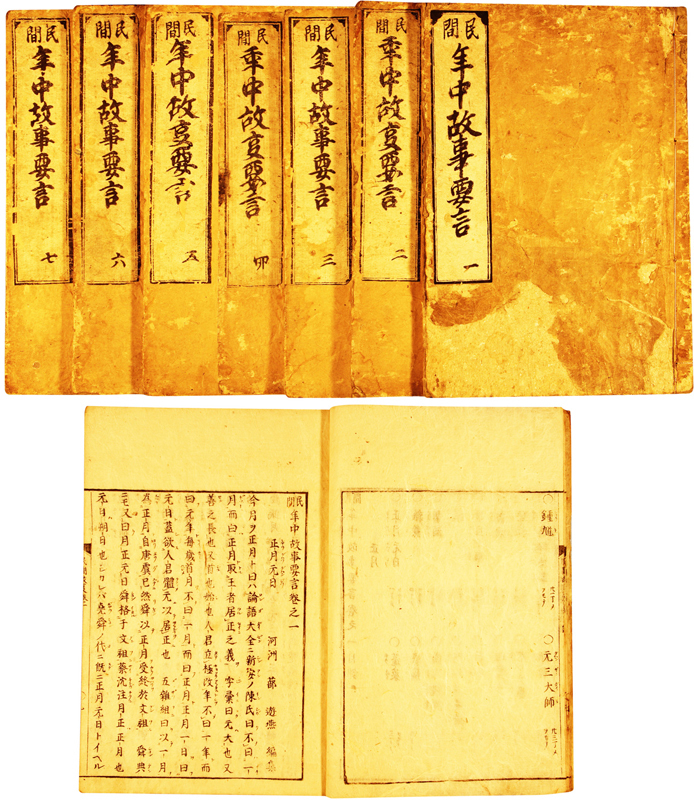 民間 年中故事要言 一
民間 年中故事要言 二
民間 年中故事要言 三
民間 年中故事要言 四
民間 年中故事要言 五
民間 年中故事要言 六
民間 年中故事要言 七
○鍾馗
○元三大師
民間年中故事要言卷之一
正月元日 河洲 蔀遊燕 編集
今月ヲ正月ト曰ハ論語大全ニ新安ノ陳氏曰不曰一
月而曰正月取王者居正之義 字彙曰元大也又
善之長也又首也始也人君立極改年不曰一年而
曰元年每歲首月不曰一月而曰正月正月一日曰
元日蓋欲人君體元以居正也 五雜組曰以一月
為正月自唐虞已然舜以正月受終於文祖 舜典
ニ又曰月正元日舜格于文祖蔡沈注月正正月也
元日朔日也シカレハ堯舜ノ代ニ既ニ正月元日トイヘル